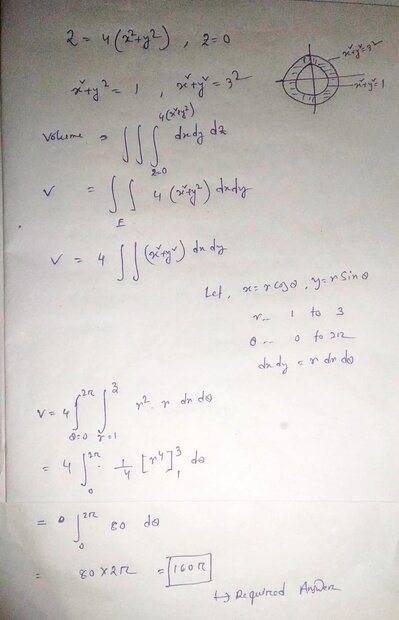 z = 4(x²+y²) , z=0
x²+y² = 1 , x²+y² = 3²
x²+y²=3²
x²+y²=1
Volume = ∭ 4(x²+y²) z=0 dxdy dz
V = ∬ E 4(x²+y²) dxdy
V = 4 ∬(x²+y²) dx dy
Let, x=r cosθ , y=r Sinθ
r... 1 to 3
θ... 0 to 2π
dx dy = r dr dθ
V = 4 ∫ 2π θ=0 ∫ 3 r=1 r². r dr dθ
= 4 ∫ 2π 0 . 1/4 [r⁴] 3 1 dθ
= ∫ 2π 0 80 dθ
= 80×2π = 160π
↳ Required Answer